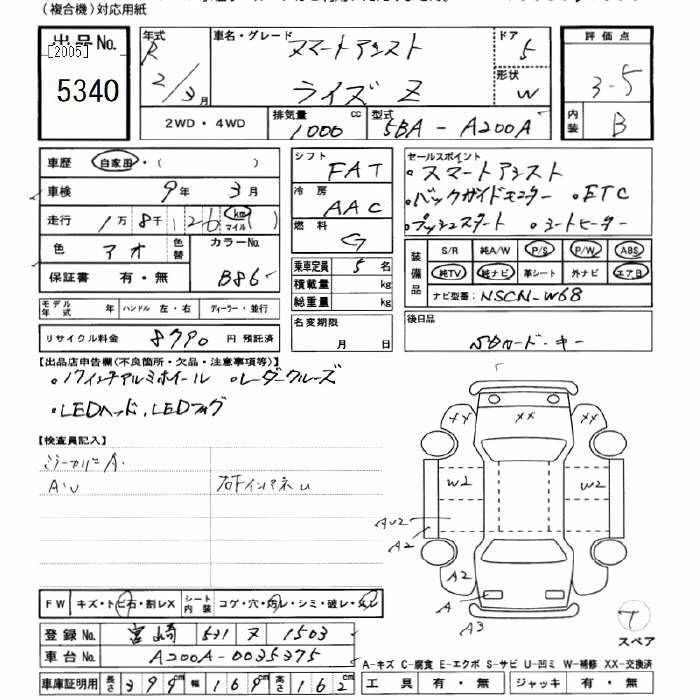 (複合機)対応用紙
出品No.
[2005]
5340
年式
R
2/3月
車名・グレード
スマートアシスト
ライズ Z
ドア
5
形状
W
評価点
3.5
内装
B
2WD・4WD
排気量
1000
cc
型式
5BA-A200A
車歴 自家用・( )
車検 9年 3月
走行 1万 8千 126 km マイル ( )
色 アオ
色替
カラーNo.
B86
保証書 有・無
シフト
FAT
冷房
AAC
燃料
G
乗車定員 5名
積載量 kg
総重量 kg
セールスポイント
・スマートアシスト
・バックガイドモニター ・ETC
・プッシュスタート ・シートヒーター
装備品
S/R 純A/W P/S P/W ABS
純TV 純ナビ 革シート 外ナビ エアB
ナビ型番: NSCN-W68
モデル年式 年 ハンドル 左・右 ディーラー・並行
リサイクル料金 8790 円 預託済
名変期限
月 日
後日品
SDカード・キー
【出品店申告欄(不良箇所・欠品・注意事項等)】
・17インチアルミホイール ・レーダークルーズ
・LEDヘッド、LEDフォグ
【検査員記入】
ミラーカバーA.
AU
右Fインパネ U
XX XX XX
W2 W2
AU2
A2
A2
A
A3
T
スペア
FW キズ・トビ石・割レX
シート内装
コゲ・穴・汚レ・シミ・破レ・スレ
登録No. 宮崎 531 ヌ 1503
車台No. A200A-0035375
A-キズ C-腐食 E-エクボ S-サビ U-凹ミ W-補修 XX-交換済
車庫証明用 長さ 399cm 幅 169cm 高さ 162cm
工具 有・無 ジャッキ 有・無